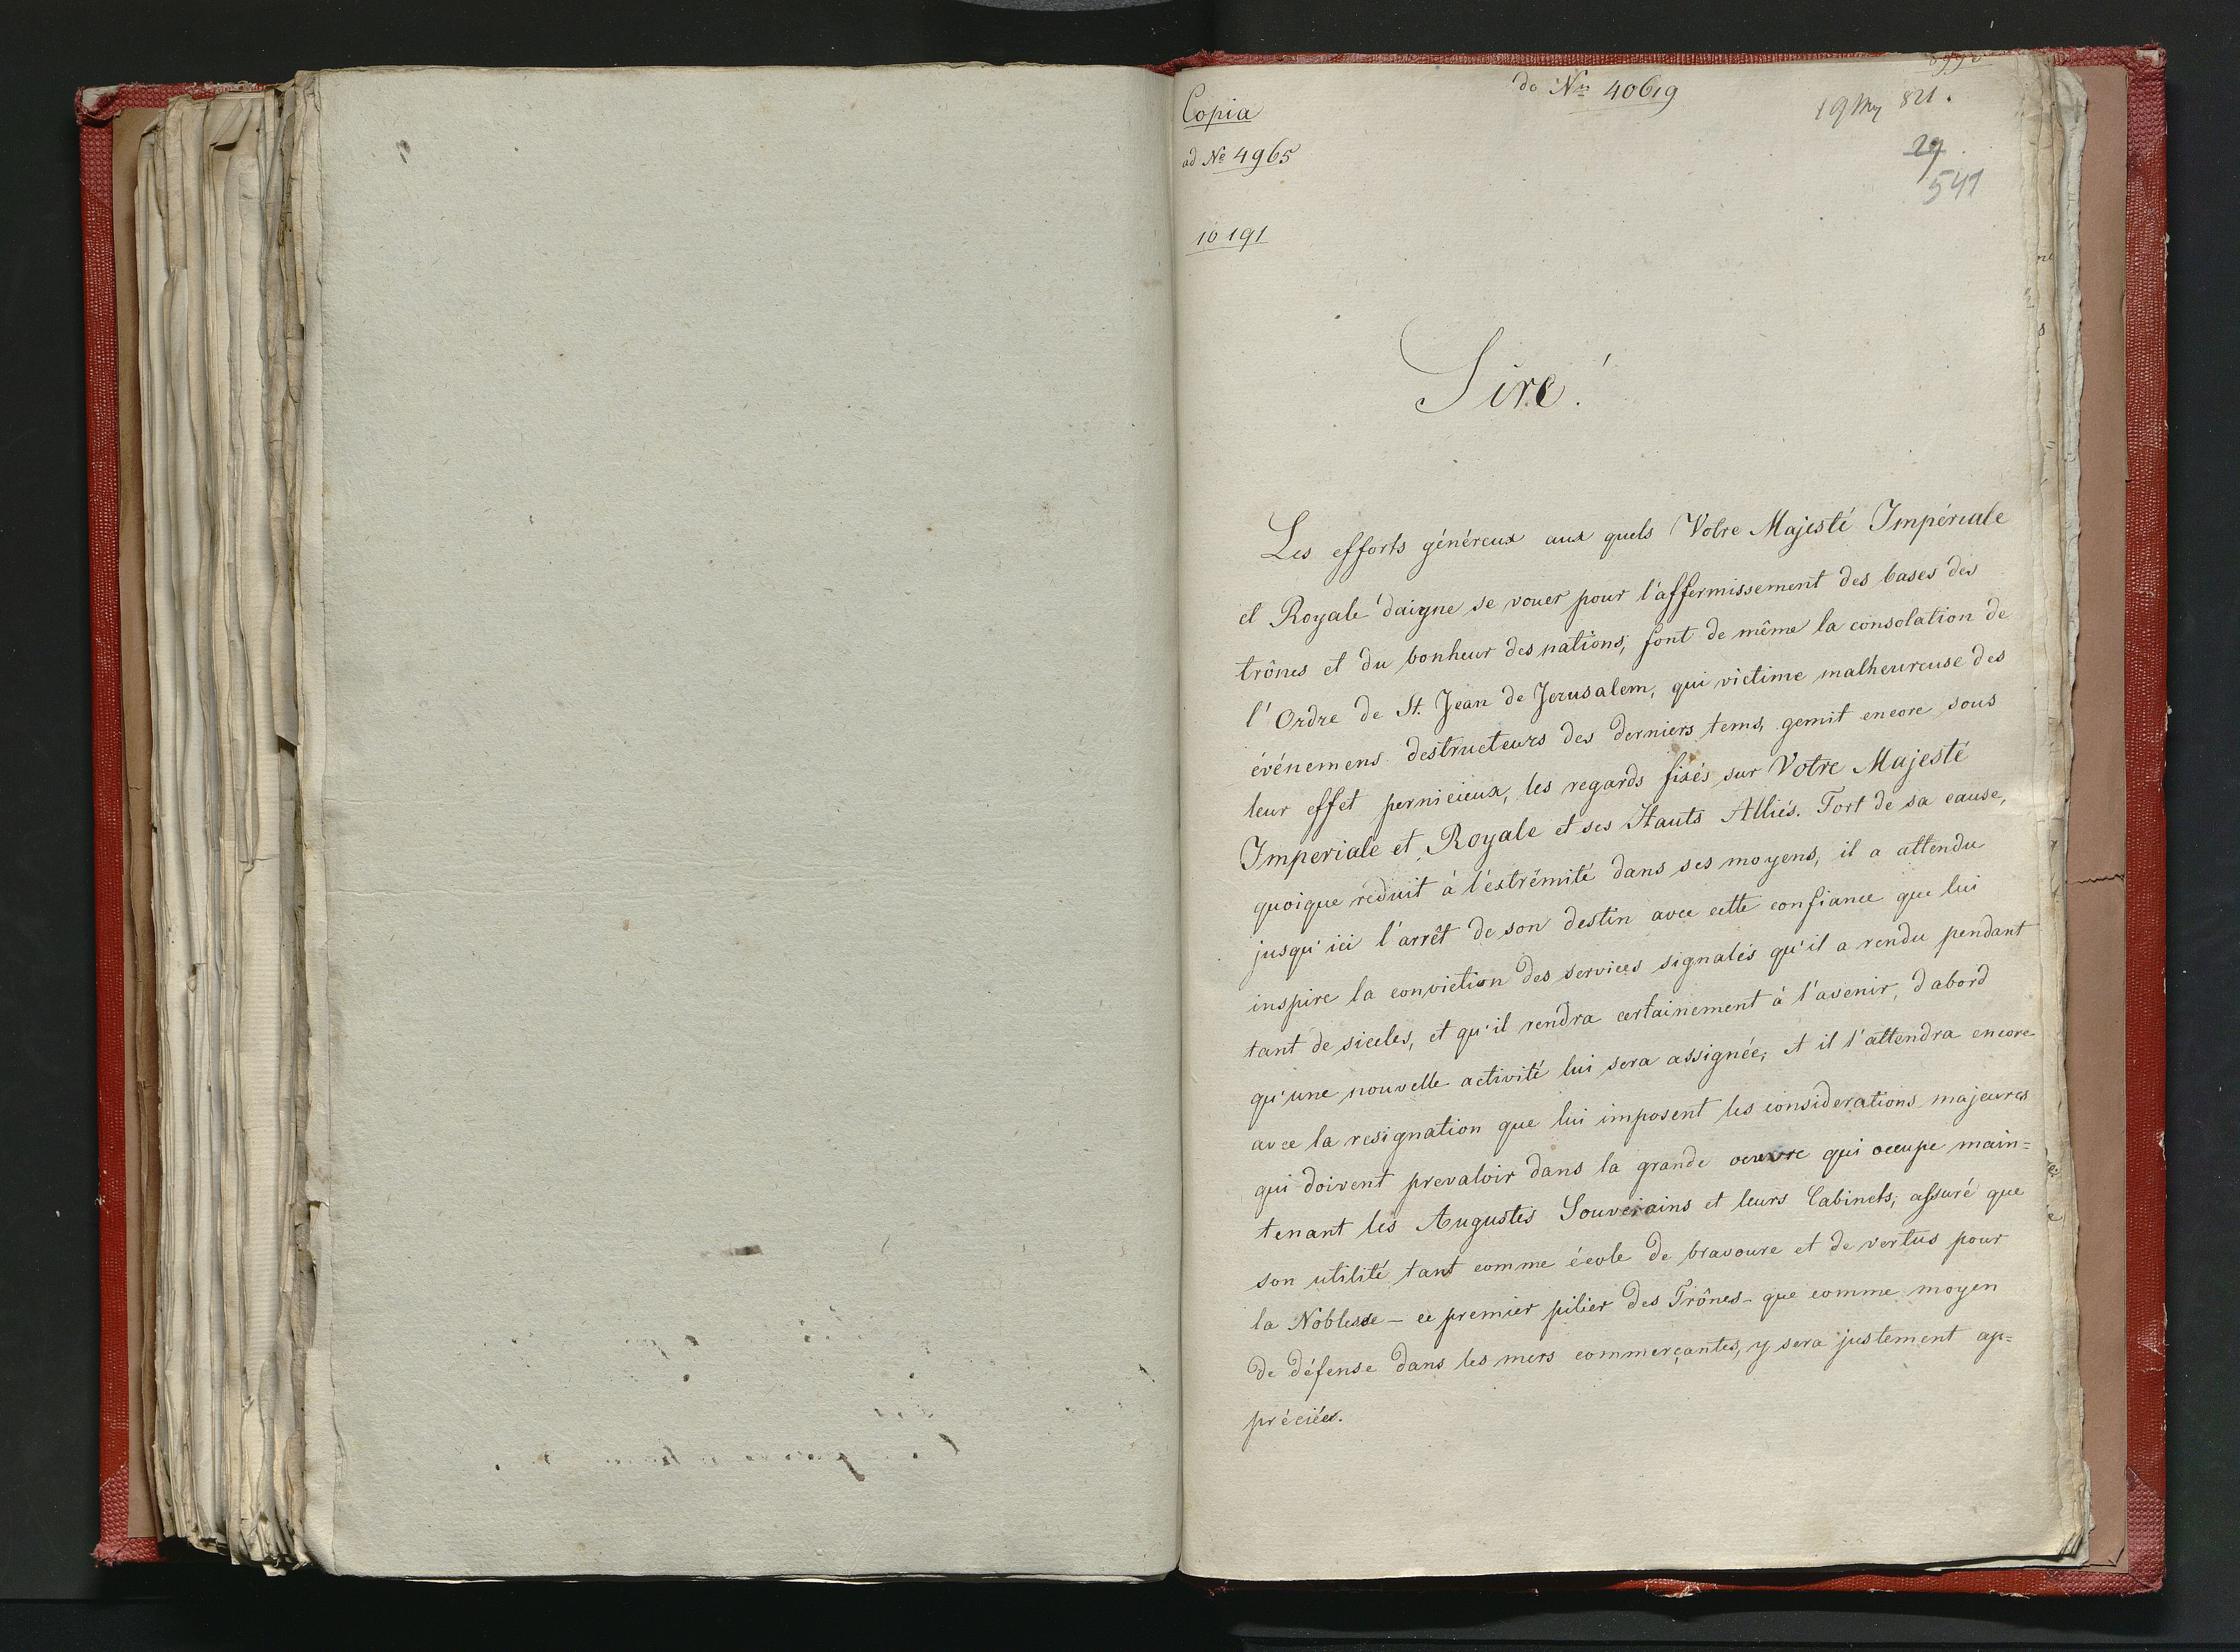 Copia
do Nro 40619
19 May 821.
29
541
ad No 4965
10191
Sire!
Les efforts généreux aux quels Votre Majesté Impériale
et Royale daigne se vouer pour l'affermissement des bases des
trônes et du bonheur des nations, font de même la consolation de
l'Ordre de St. Jean de Jerusalem, qui victime malheureuse des
événemens destructeurs des derniers tems, gemit encore sous
leur effet pernicieux, les regards fixés sur Votre Majesté
Imperiale et Royale et ses Hauts Alliés. Fort de sa cause,
quoique reduit à l'extrêmité dans ses moyens, il a attendu
jusqu'ici l'arrêt de son destin avec cette confiance que lui
inspire la conviction des services signalés qu'il a rendu pendant
tant de siecles, et qu'il rendra certainement à l'avenir, d'abord
qu'une nouvelle activité lui sera assignée; et il l'attendra encore
avec la resignation que lui imposent les considerations majeures
qui doivent prevaloir dans la grande oeuvre qui occupe main=
tenant les Augustes Souverains et leurs Cabinets, assuré que
son utilité tant comme école de bravoure et de vertus pour
la Noblesse – ce premier pilier des Trônes – que comme moyen
de défense dans les mers commerçantes, y sera justement ap=
préciée.